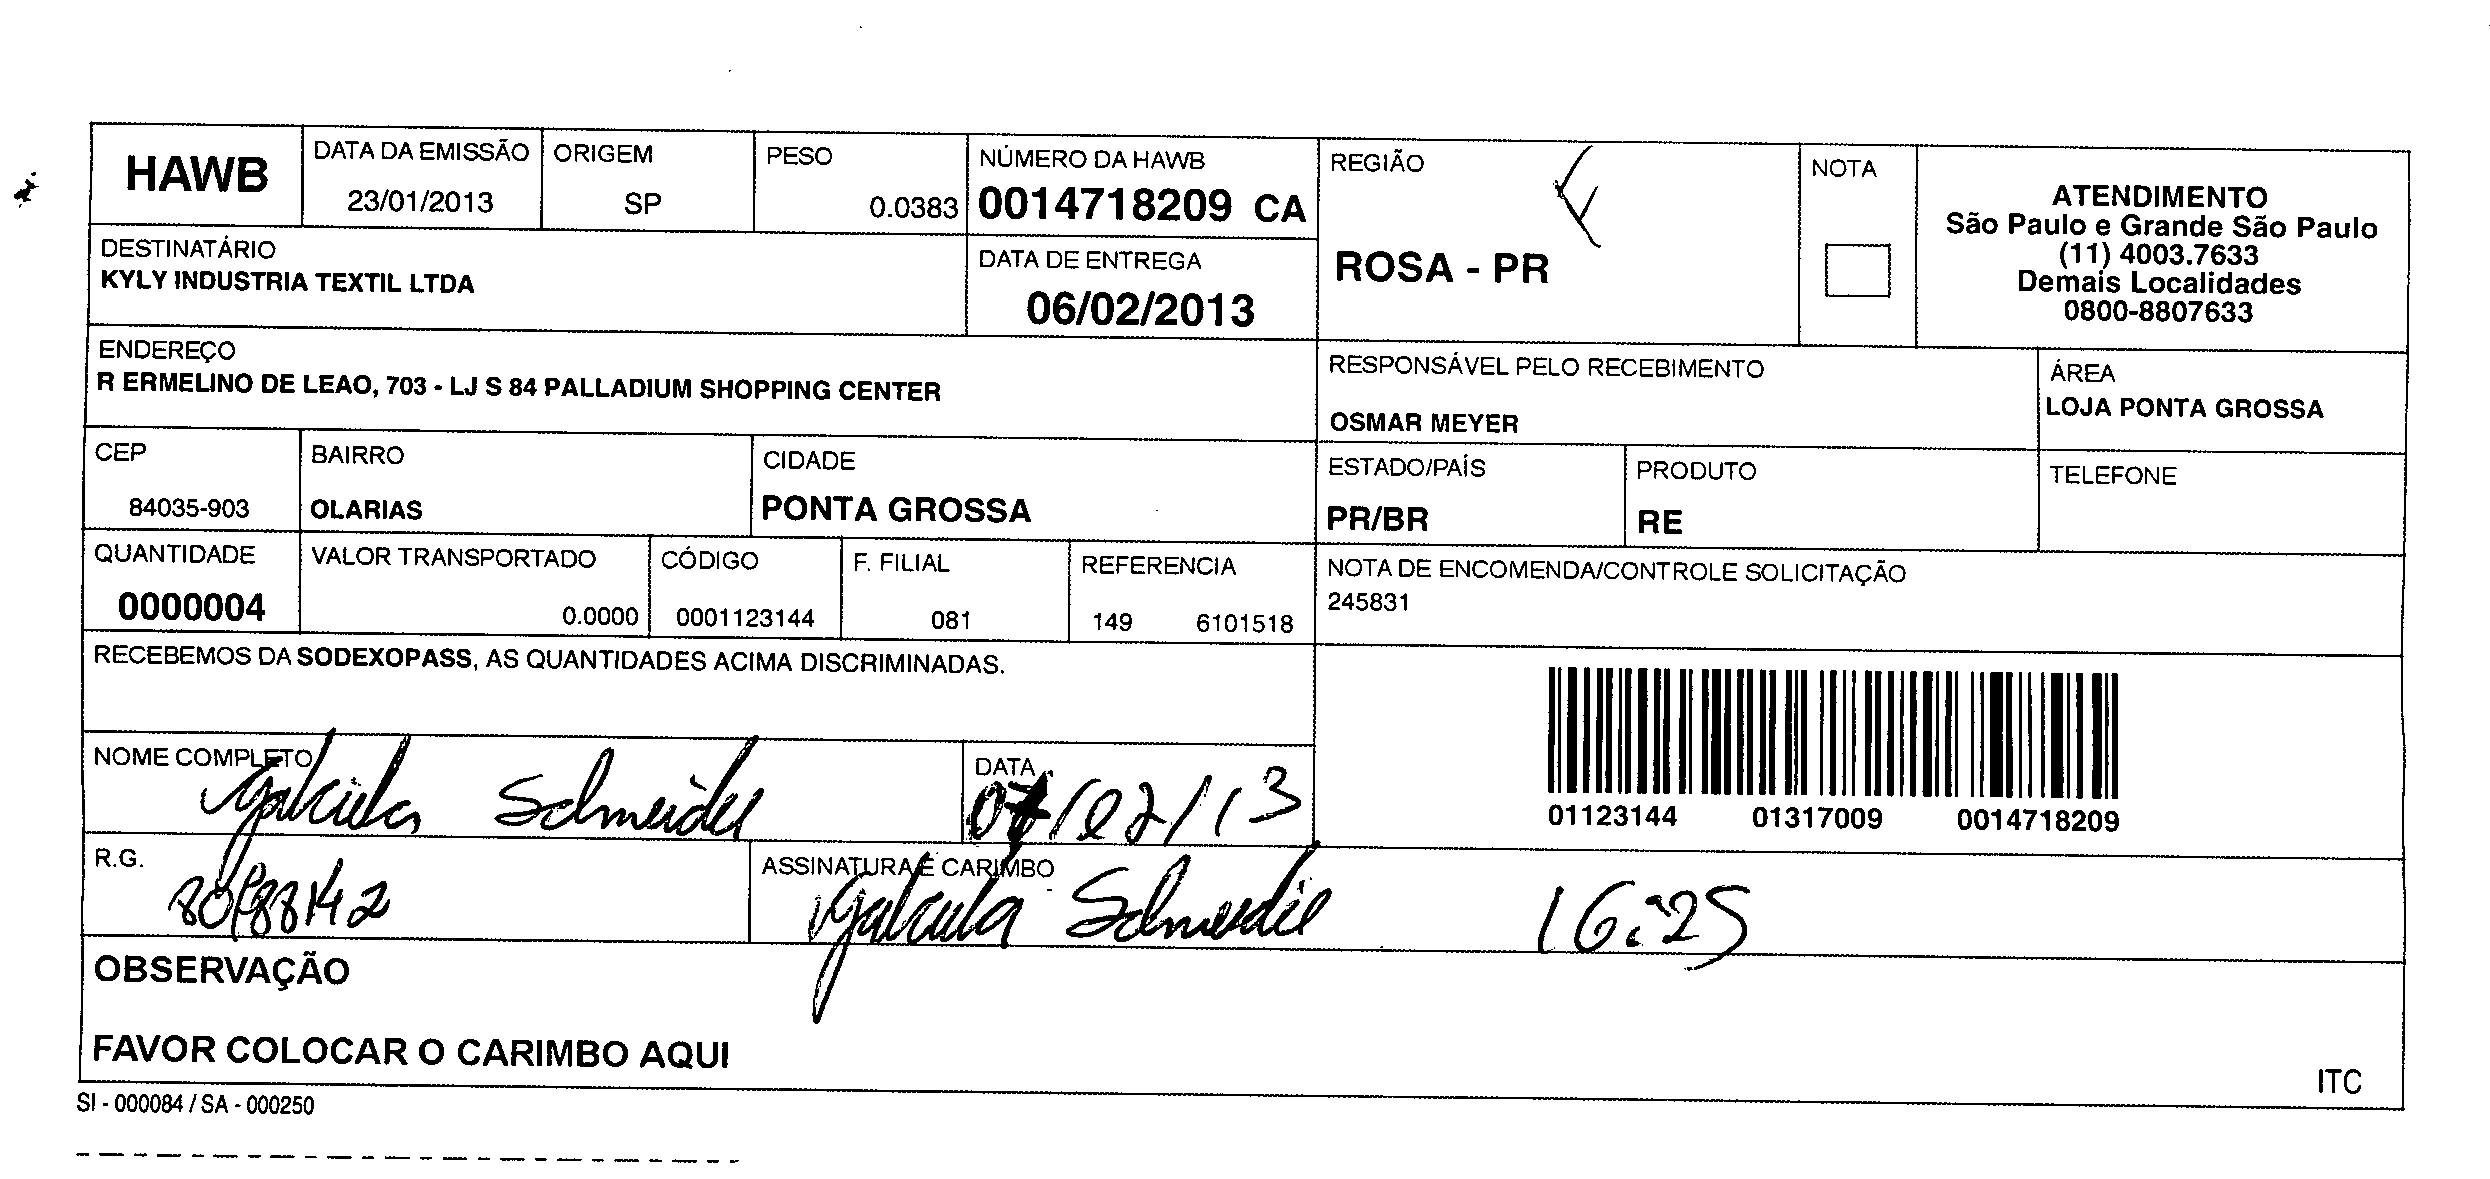 HAWB
DATA DA EMISSÃO
23/01/2013
ORIGEM
SP
PESO
0.0383
NÚMERO DA HAWB
0014718209 CA
REGIÃO
ROSA - PR
NOTA
ATENDIMENTO
São Paulo e Grande São Paulo
(11) 4003.7633
Demais Localidades
0800-8807633
DESTINATÁRIO
KYLY INDUSTRIA TEXTIL LTDA
DATA DE ENTREGA
06/02/2013
ENDEREÇO
R ERMELINO DE LEAO, 703 - LJ S 84 PALLADIUM SHOPPING CENTER
RESPONSÁVEL PELO RECEBIMENTO
OSMAR MEYER
ÁREA
LOJA PONTA GROSSA
CEP
84035-903
BAIRRO
OLARIAS
CIDADE
PONTA GROSSA
ESTADO/PAÍS
PR/BR
PRODUTO
RE
TELEFONE
QUANTIDADE
0000004
VALOR TRANSPORTADO
0.0000
CÓDIGO
0001123144
F. FILIAL
081
REFERENCIA
149 6101518
NOTA DE ENCOMENDA/CONTROLE SOLICITAÇÃO
245831
RECEBEMOS DA SODEXOPASS, AS QUANTIDADES ACIMA DISCRIMINADAS.
01123144 01317009 0014718209
NOME COMPLETO
DATA
07/02/13
R.G.
ASSINATURA E CARIMBO
16:25
OBSERVAÇÃO
FAVOR COLOCAR O CARIMBO AQUI
ITC
SI - 000084 / SA - 000250